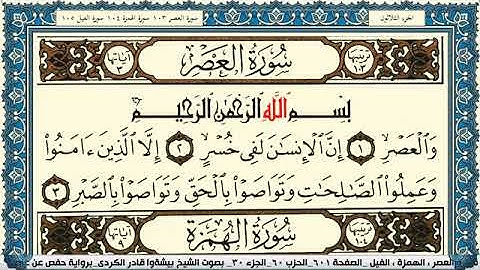 الجزء الثلاثون
سورة العصر ١٠٣ سورة الهمزة ١٠٤ سورة الفيل ١٠٥
ترتيبها ١٠٣
سُورَةُ العَصْرِ
آياتها ٣
بِسْمِ اللَّهِ الرَّحْمَٰنِ الرَّحِيمِ
وَالْعَصْرِ ١ إِنَّ الْإِنسَانَ لَفِي خُسْرٍ ٢ إِلَّا الَّذِينَ ءَامَنُوا
وَعَمِلُوا الصَّالِحَاتِ وَتَوَاصَوْا بِالْحَقِّ وَتَوَاصَوْا بِالصَّبْرِ ٣
ترتيبها ١٠٤
سُورَةُ الهُمَزَةِ
آياتها ٩
العصر ، الهمزة ، الفيل _ الصفحة ٦٠١_الحزب ٦٠_الجزء ٣٠_ بصوت الشيخ بيشةوا قادر الكردى_برواية حفص عن